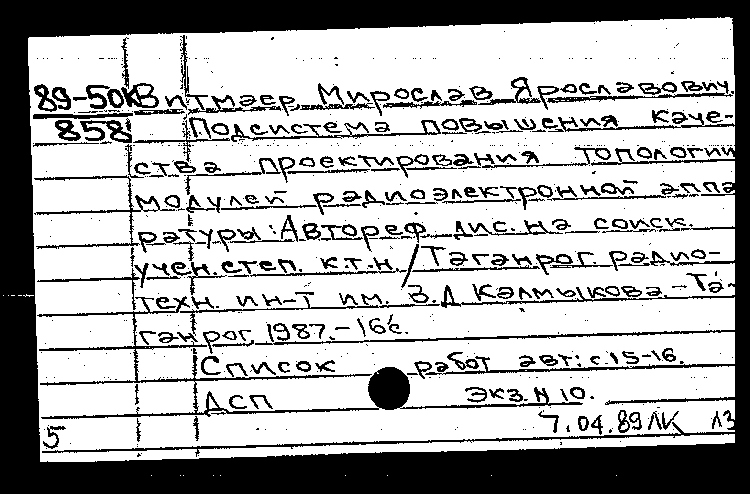 89-50К Витмаер Мирослав Ярославович.
858 Подсистема повышения каче-
ства проектирования топологии
модулей радиоэлектронной аппа
ратуры: Автореф. дис. на соиск.
учен. степ. к.т.н. / Таганрог. радио-
техн. ин-т им. В.Д Калмыкова. - Та-
ганрог, 1987. - 16с.
Список работ авт: с.15-16.
ДСП экз. N 10.
5 7.04.89 ЛК